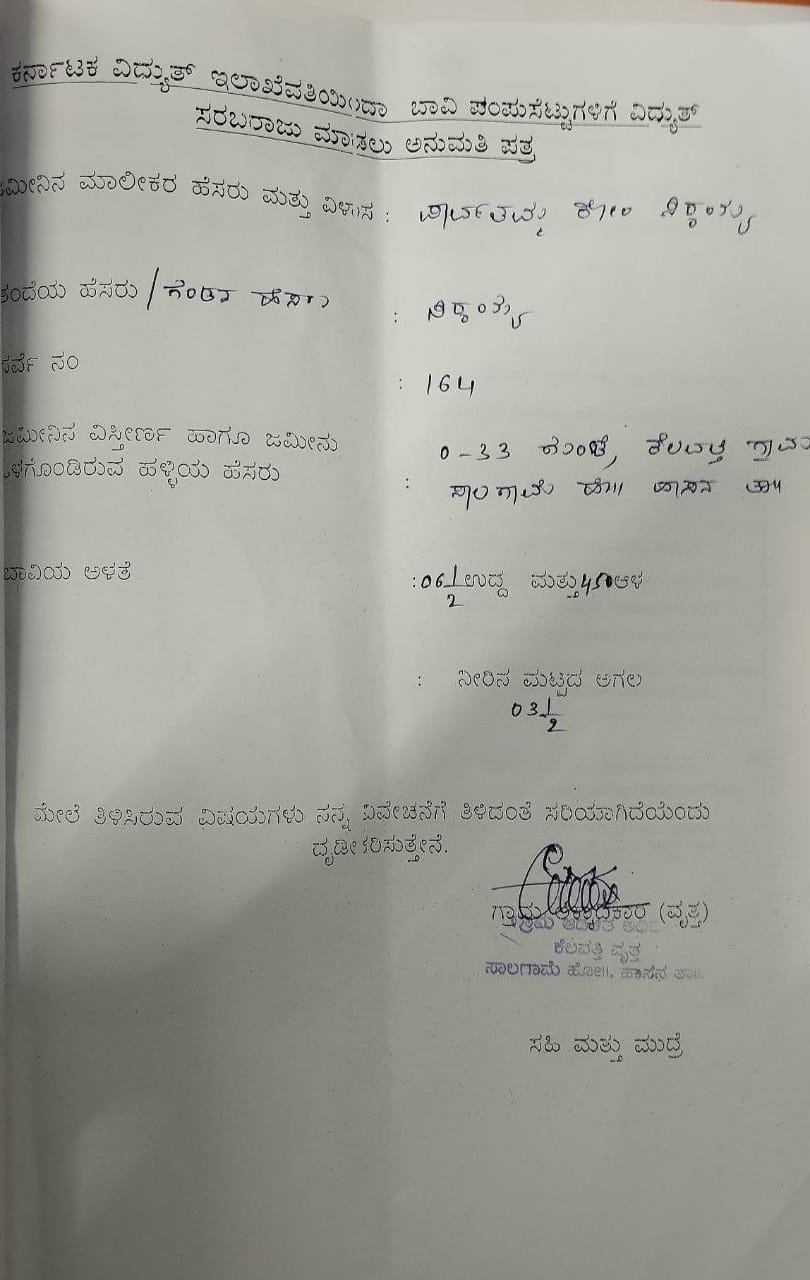 ಕರ್ನಾಟಕ ವಿದ್ಯುತ್ ಇಲಾಖೆವತಿಯಿಂದಾ ಬಾವಿ ಪಂಪುಸೆಟ್ಟುಗಳಿಗೆ ವಿದ್ಯುತ್
ಸರಬರಾಜು ಮಾಡಲು ಅನುಮತಿ ಪತ್ರ
ಜಮೀನಿನ ಮಾಲೀಕರ ಹೆಸರು ಮತ್ತು ವಿಳಾಸ : ಪಾರ್ವತಮ್ಮ ಕೋಂ ನಿರ್ವಾಣಯ್ಯ
ತಂದೆಯ ಹೆಸರು / ಗಂಡನ ಹೆಸರು :
ಸರ್ವೆ ನಂ : 164
ಜಮೀನಿನ ವಿಸ್ತೀರ್ಣ ಹಾಗೂ ಜಮೀನು 0-33 ಗುಂಟೆ ಕೆಲವತ್ತಿ ಗ್ರಾಮ
ಒಳಗೊಂಡಿರುವ ಹಳ್ಳಿಯ ಹೆಸರು : ಸಾಲಗಾಮೆ ಹೋ॥ ಹಾಸನ ತಾ॥
ಬಾವಿಯ ಅಳತೆ : 06 1/2 ಉದ್ದ ಮತ್ತು 450 ಆಳ
: ನೀರಿನ ಮಟ್ಟದ ಅಗಲ
03 1/2
ಮೇಲೆ ತಿಳಿಸಿರುವ ವಿಷಯಗಳು ನನ್ನ ವಿವೇಚನೆಗೆ ತಿಳಿದಂತೆ ಸರಿಯಾಗಿದೆಯೆಂದು
ದೃಡೀಕರಿಸುತ್ತೇನೆ.
ಗ್ರಾಮ (ವೃತ್ತ)
ಗ್ರಾಮ ಆಡಳಿತ
ಕೆಲವತ್ತಿ ವೃತ್ತ
ಸಾಲಗಾಮೆ ಹೋ॥, ಹಾಸನ ತಾ॥.
ಸಹಿ ಮತ್ತು ಮುದ್ರೆ